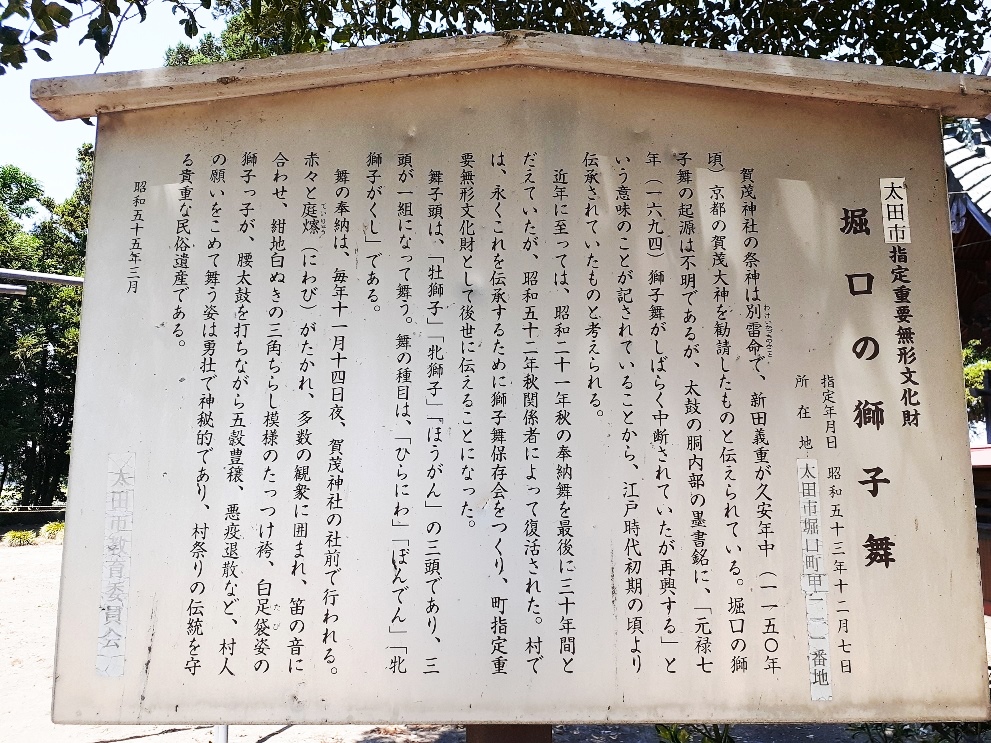 太田市指定重要無形文化財
堀口の獅子舞
指定年月日 昭和五十三年十二月七日
所在地 太田市堀口町甲二一番地
賀茂神社の祭神は別雷命で、新田義重が久安年中(一一五〇年
頃)京都の賀茂大神を勧請したものと伝えられている。堀口の獅
子舞の起源は不明であるが、太鼓の胴内部の墨書銘に、「元禄七
年(一六九四)獅子舞がしばらく中断されていたが再興する」と
いう意味のことが記されていることから、江戸時代初期の頃より
伝承されていたものと考えられる。
近年に至っては、昭和二十一年秋の奉納舞を最後に三十年間と
だえていたが、昭和五十二年秋関係者によって復活された。村で
は、永くこれを伝承するために獅子舞保存会をつくり、町指定重
要無形文化財として後世に伝えることになった。
舞子頭は、「牡獅子」「牝獅子」「ほうがん」の三頭であり、三
頭が一組になって舞う。舞の種目は、「ひらにわ」「ぼんでん」「牝
獅子がくし」である。
舞の奉納は、毎年十一月十四日夜、賀茂神社の社前で行われる。
赤々と庭燎(にわび)がたかれ、多数の観衆に囲まれ、笛の音に
合わせ、紺地白ぬきの三角ちらし模様のたっつけ袴、白足袋姿の
獅子っ子が、腰太鼓を打ちながら五穀豊穣、悪疫退散など、村人
の願いをこめて舞う姿は勇壮で神秘的であり、村祭りの伝統を守
る貴重な民俗遺産である。
昭和五十五年三月
太田市教育委員会